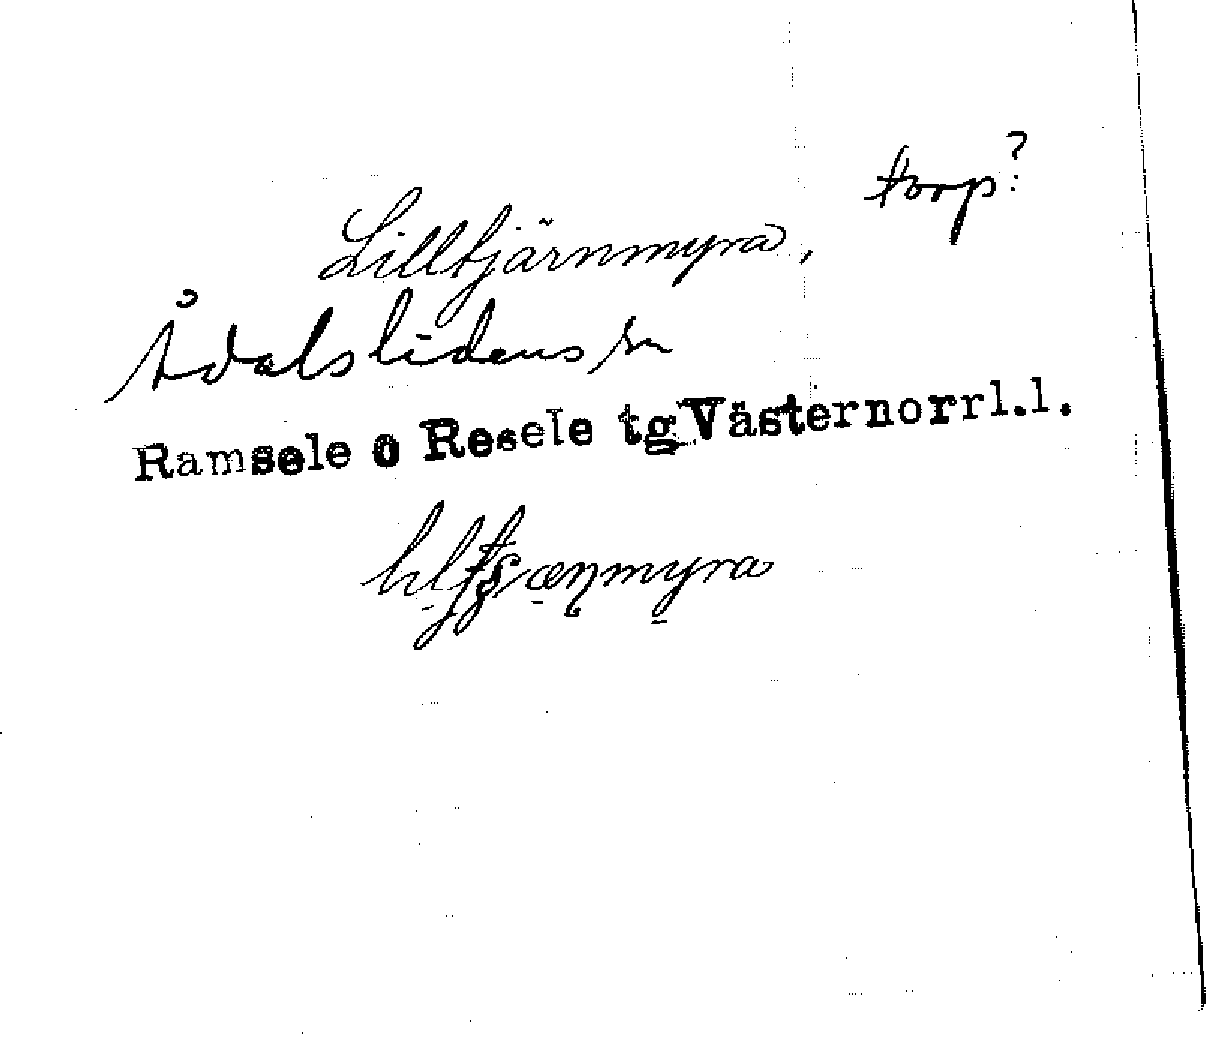 torp?
Lilltjärnmyra,
Ådalslidens sn
Ramsele o Resele tg Västernorrl.l.